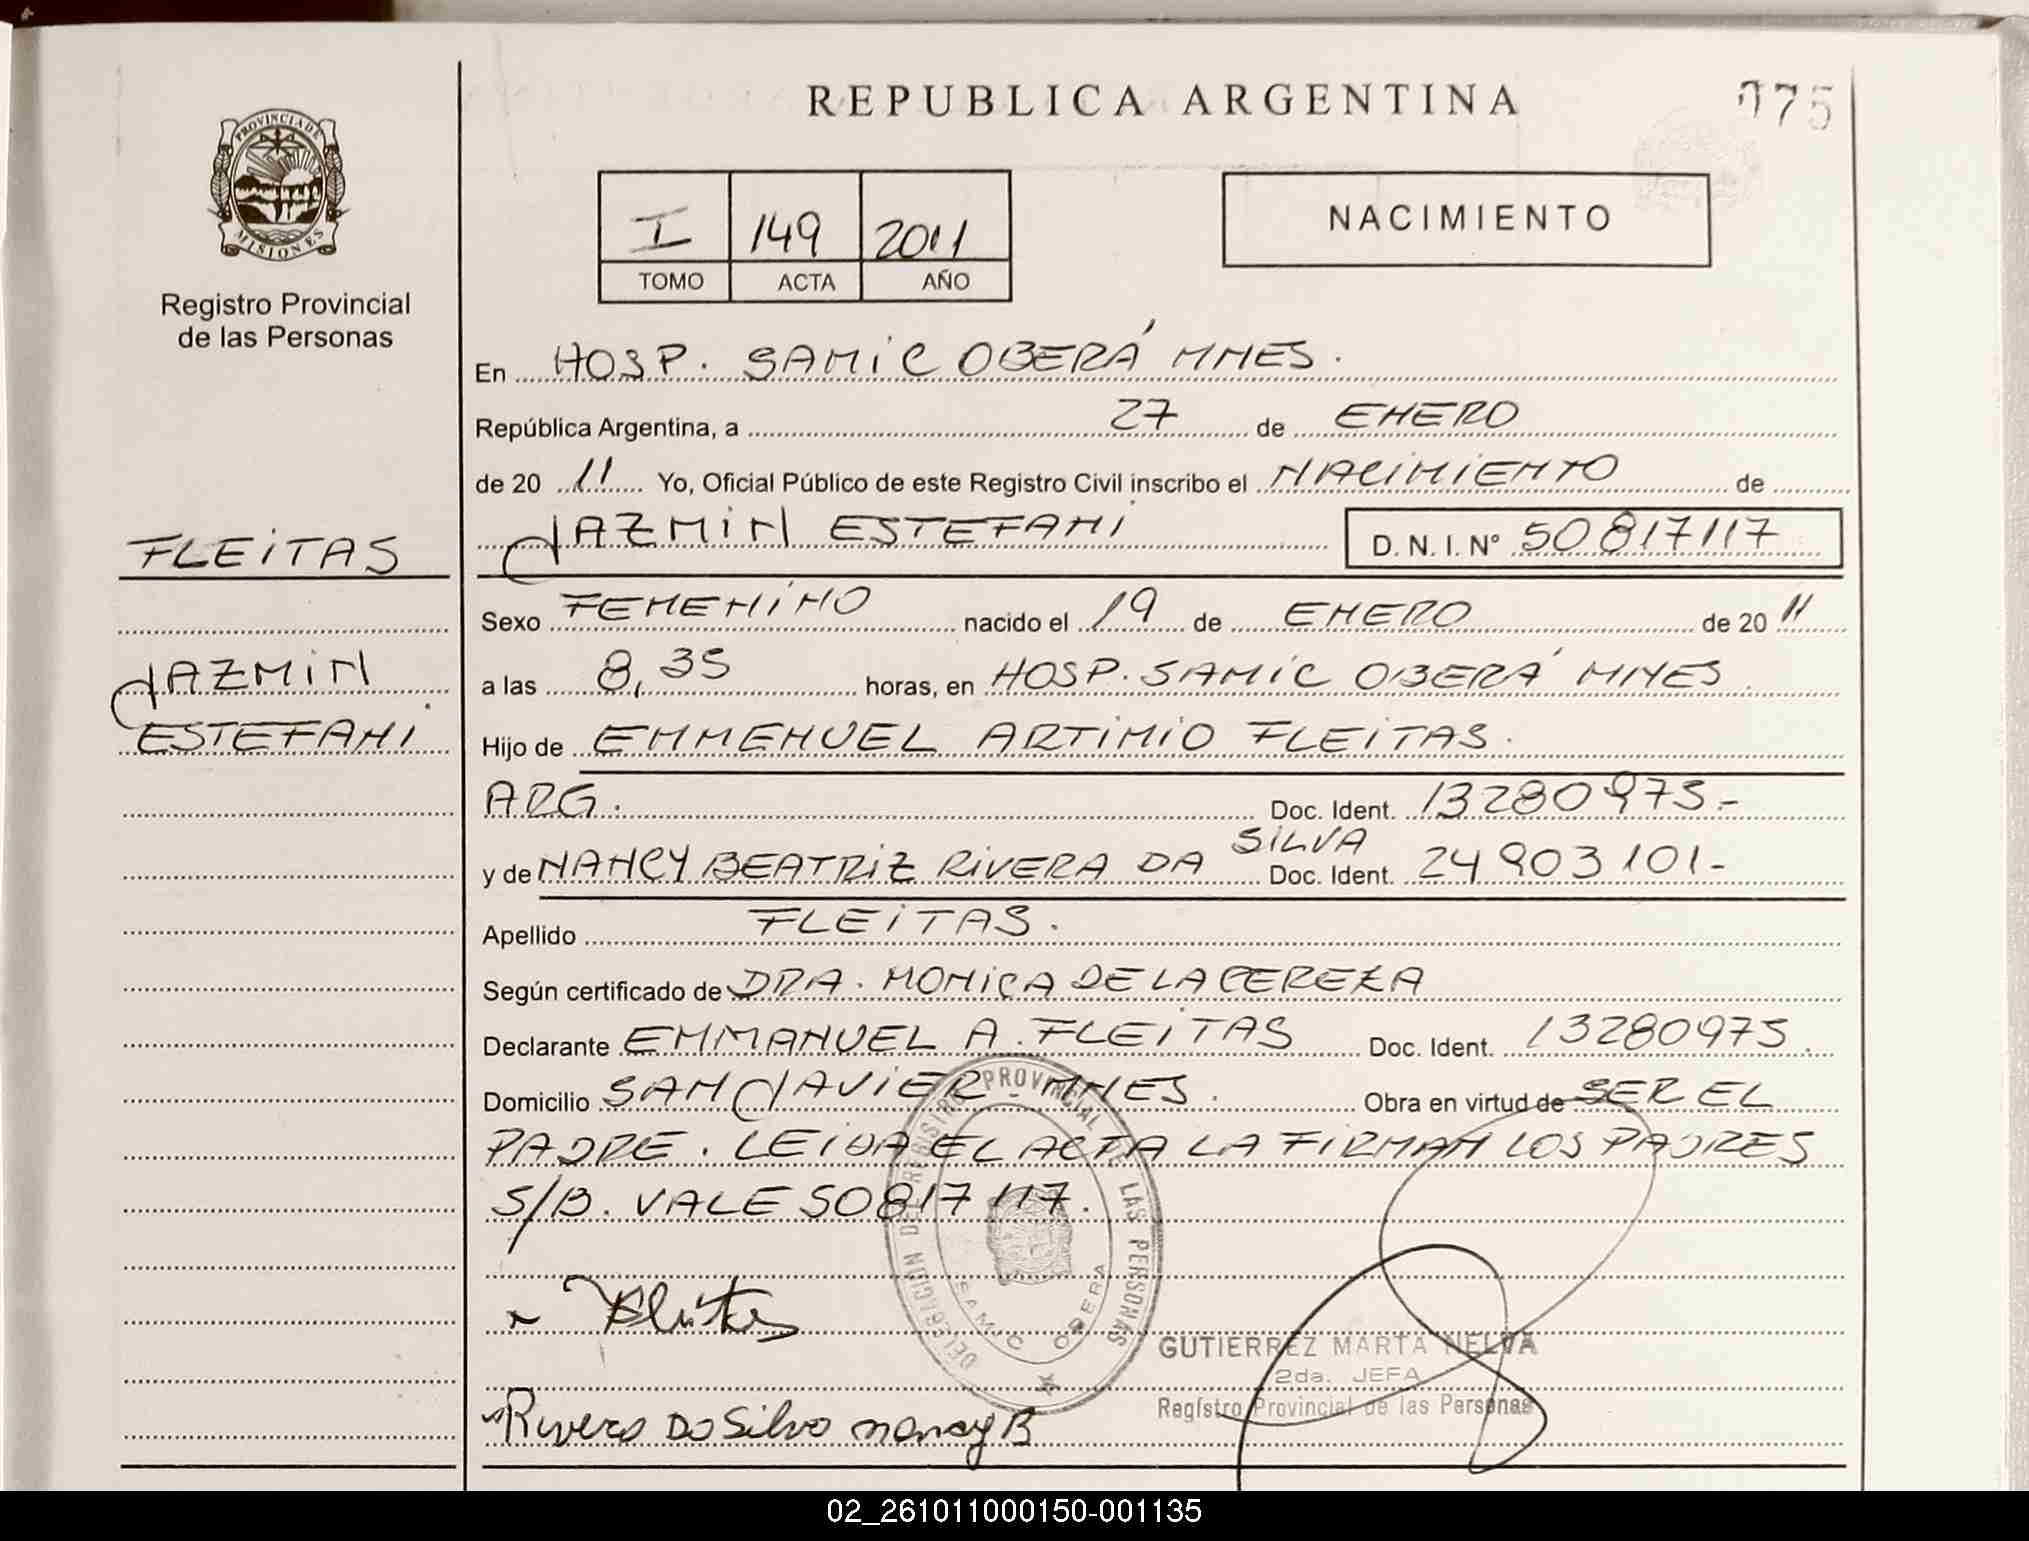 REPUBLICA ARGENTINA
175
PROVINCIA DE
MISIONES
Registro Provincial
de las Personas
I 149 2011
TOMO ACTA AÑO
NACIMIENTO
En HOSP. SAMIC OBERÁ MNES.
República Argentina, a 27 de ENERO
de 20 11 Yo, Oficial Público de este Registro Civil inscribo el NACIMIENTO de
FLEITAS
JAZMIN ESTEFANI D. N. I. Nº 50817117
Sexo FEMENINO nacido el 19 de ENERO de 20 11
JAZMIN
a las 8,35 horas, en HOSP. SAMIC OBERÁ MNES
ESTEFANI
Hijo de EMMENUEL ARTIMIO FLEITAS.
ARG. Doc. Ident. 13280975.-
y de NANCY BEATRIZ RIVERA DA SILVA Doc. Ident. 24903101-
Apellido FLEITAS.
Según certificado de DRA. MONICA DE LA PEREZA
Declarante EMMANUEL A. FLEITAS Doc. Ident. 13280975.
Domicilio SAN JAVIER MNES. Obra en virtud de SER EL
PADRE. LEIDA EL ACTA LA FIRMAN LOS PADRES
S/B. VALE 50817117.
DELEGACION DEL REGISTRO PROVINCIAL DE LAS PERSONAS
SAMIC OBERA
Fleitas
GUTIERREZ MARTA NELVA
2da. JEFA
Registro Provincial de las Personas
Rivera Da Silva Nancy B
02_261011000150-001135